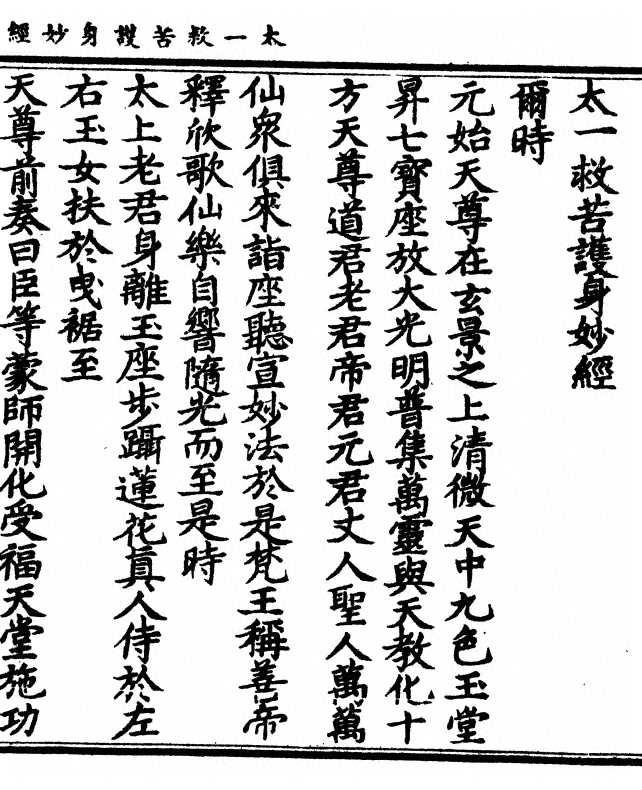 太一救苦護身妙經
太一救苦護身妙經
爾時
元始天尊在玄景之上清微天中九色玉堂
昇七寶座放大光明普集萬靈與天教化十
方天尊道君老君帝君元君丈人聖人萬萬
仙衆俱來詣座聽宣妙法於是梵王稱善帝
釋欣歌仙樂自響隨光而至是時
太上老君身離玉座步躡蓮花眞人侍於左
右玉女扶於曳裾至
天尊前奏曰臣等蒙師開化受福天堂施功